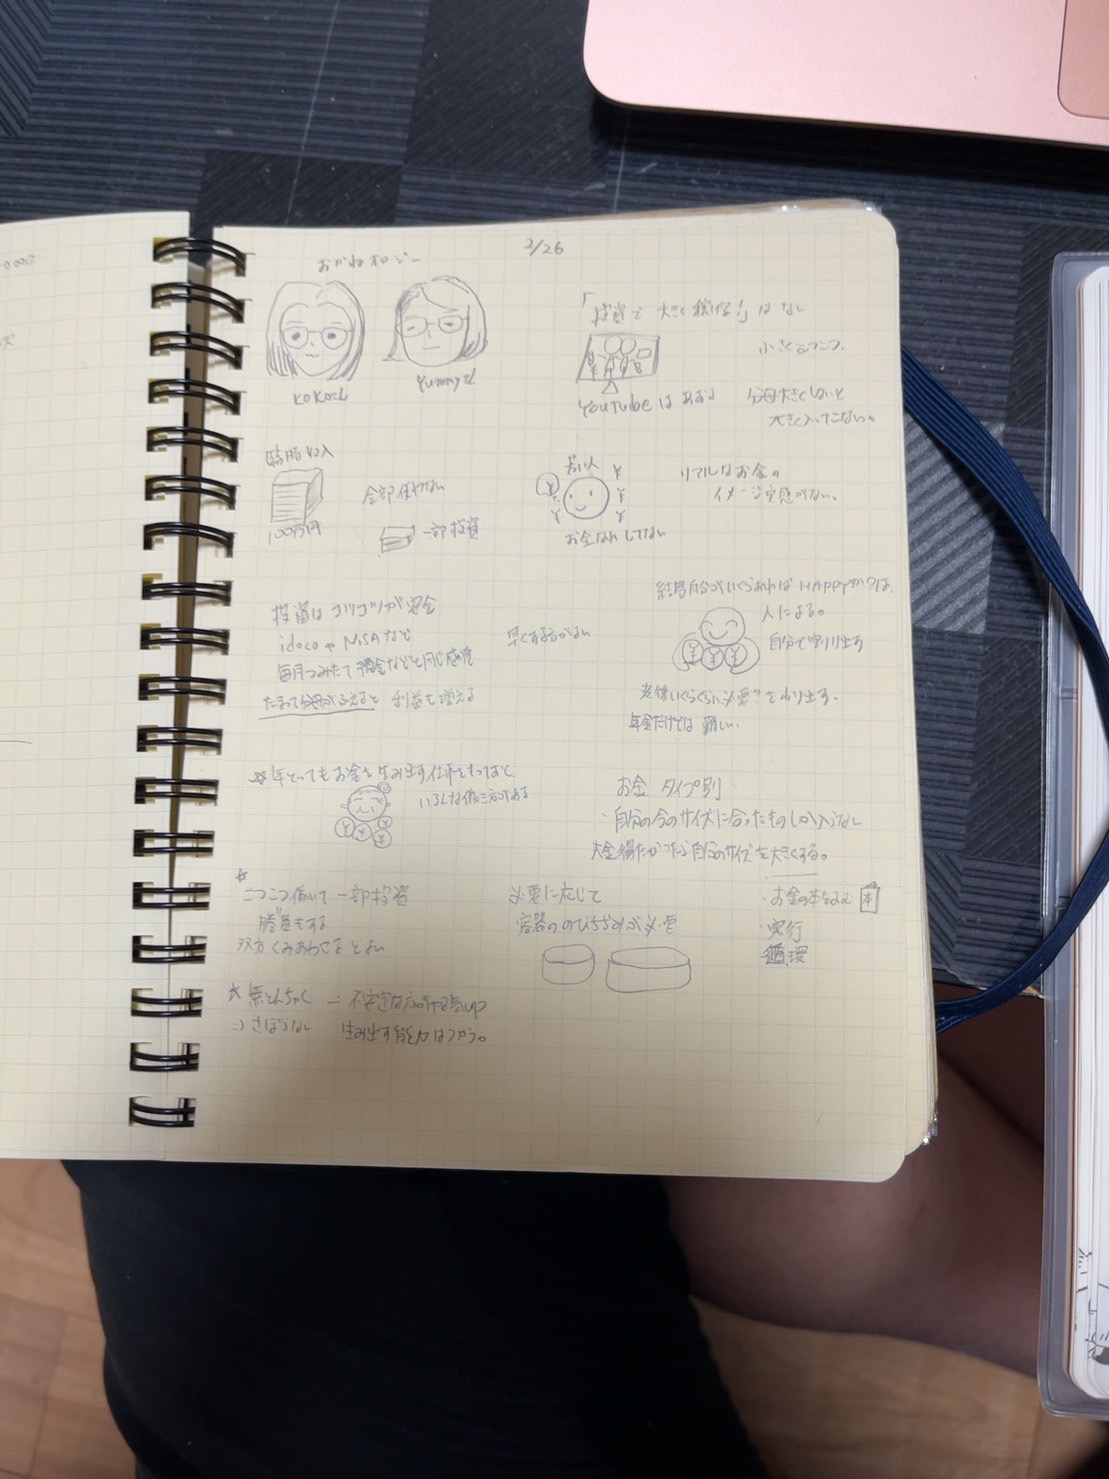 2/26
おかねオロジー
KOKOさん
Yummyさん
「投資で 大きく稼げる!」はない
小さくこつこつ
YouTubeは あおる
分母大きくしないと
大きく入ってこない。
臨時収入
100万円
全部使わない
一部投資
若い人
¥
¥
¥
¥
¥
お金なれしてない
リアルなお金の
イメージ実感がない。
投資はコツコツが安全
idecoやNISAなど
毎月つみたて 預金などと同じ感覚
たまって分母がふえると 利益も増える
早くするがよい
結局自分がいくらあればHAPPYか?は、
人による。
自分で割り出す
¥ ¥ ¥
老後いくらくらい必要?をわり出す。
年金だけでは 難しい。
☆年とってもお金を生み出す仕事をもっておく
いろんな働き方がある
¥ ¥ ¥
お金 タイプ別
・自分の今のサイズに合ったものしか入らない
大金得たかったら自分のサイズを大きくする。
☆
こつこつ働いて 一部投資
勝負をする
双方くみあわせるとよい
必要に応じて
容器ののびちぢみが必要
・お金の本をよむ 本
・実行
循環
☆無とんちゃく
⇒さぼらない
生み出す能力はつかう。